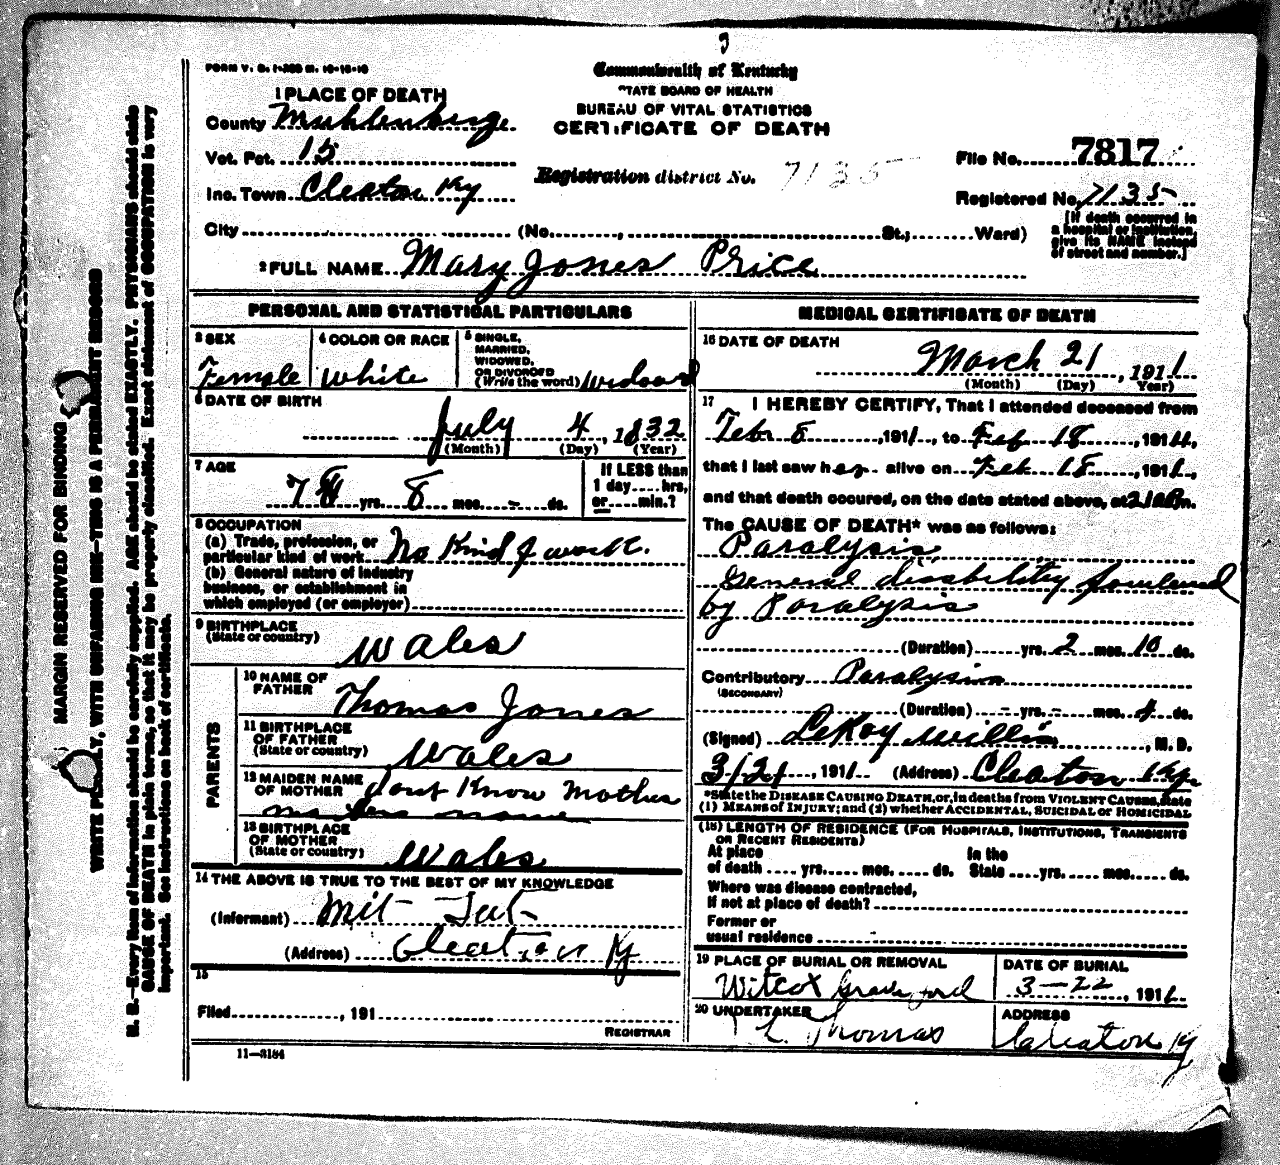 FORM V. S. 1-200 M. 10-10-10
Commonwealth of Kentucky
STATE BOARD OF HEALTH
BUREAU OF VITAL STATISTICS
CERTIFICATE OF DEATH
1 PLACE OF DEATH
County Muhlenberg
Vot. Pct. 15
Inc. Town Cleaton Ky
Registration district No. 7135
File No. 7817
Registered No. 7135
City (No. , St.; Ward)
[If death occurred in
a hospital or institution,
give its NAME instead
of street and number.]
2 FULL NAME Mary Jones Price
PERSONAL AND STATISTICAL PARTICULARS
3 SEX
Female
4 COLOR OR RACE
White
5 SINGLE,
MARRIED,
WIDOWED,
OR DIVORCED
(Write the word) Widowed
6 DATE OF BIRTH
July 4, 1832
(Month) (Day) (Year)
7 AGE
78 yrs. 8 mos. - ds.
If LESS than
1 day....hrs,
or....min.?
8 OCCUPATION
(a) Trade, profession, or
particular kind of work No Kind of work.
(b) General nature of industry
business, or establishment in
which employed (or employer)
9 BIRTHPLACE
(State or country)
Wales
PARENTS
10 NAME OF
FATHER
Thomas Jones
11 BIRTHPLACE
OF FATHER
(State or country)
Wales
12 MAIDEN NAME
OF MOTHER dont Know Mothers
maiden name
13 BIRTHPLACE
OF MOTHER
(State or country)
Wales
14 THE ABOVE IS TRUE TO THE BEST OF MY KNOWLEDGE
(Informant) Mit
(Address) Cleaton Ky
15
Filed , 191
REGISTRAR
11-3184
MEDICAL CERTIFICATE OF DEATH
16 DATE OF DEATH
March 21, 1911
(Month) (Day) (Year)
17 I HEREBY CERTIFY, That I attended deceased from
Feb 8, 1911, to Feb 18, 1911,
that I last saw her alive on Feb 18, 1911,
and that death occured, on the date stated above, at m.
The CAUSE OF DEATH* was as follows:
Paralysis
General disability
by Paralysis
(Duration) yrs. 2 mos. 10 ds.
Contributory Paralysis
(SECONDARY)
(Duration) - yrs. - mos. 4 ds.
(Signed) LeRoy Willis, M. D.
3/21, 1911 (Address) Cleaton Ky
*State the DISEASE CAUSING DEATH, or, in deaths from VIOLENT CAUSES, state
(1) MEANS OF INJURY; and (2) whether ACCIDENTAL, SUICIDAL or HOMICIDAL
(18) LENGTH OF RESIDENCE (FOR HOSPITALS, INSTITUTIONS, TRANSIENTS
OR RECENT RESIDENTS)
At place In the
of death yrs. mos. ds. State yrs. mos. ds.
Where was disease contracted,
If not at place of death?
Former or
usual residence
19 PLACE OF BURIAL OR REMOVAL
Witcox Grave yard
DATE OF BURIAL
3-22, 1911
20 UNDERTAKER
L Thomas
ADDRESS
Cleaton Ky
MARGIN RESERVED FOR BINDING
WRITE PLAINLY, WITH UNFADING INK—THIS IS A PERMANENT RECORD
N. B.—Every item of information should be carefully supplied. AGE should be stated EXACTLY. PHYSICIANS should state
CAUSE OF DEATH in plain terms, so that it may be properly classified. Exact statement of OCCUPATION is very
important. See instructions on back of certificate.